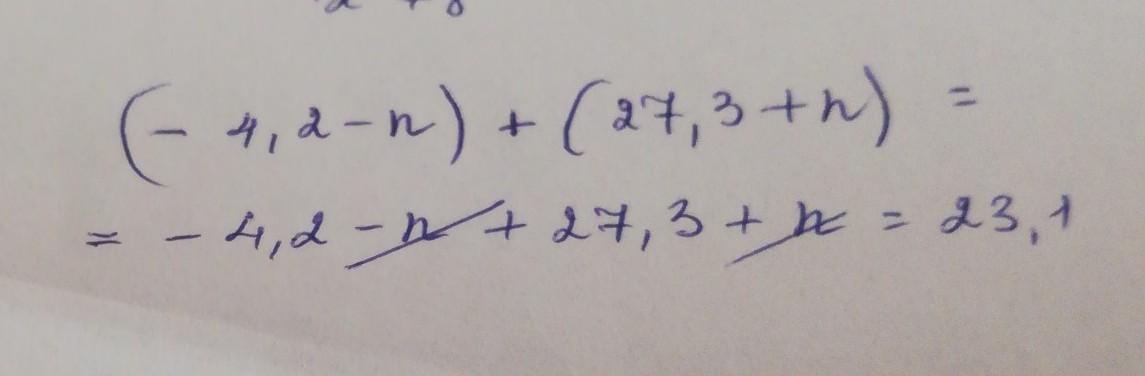 (- 4,2 - n) + (27,3 + n) =
= - 4,2 - n + 27,3 + n = 23,1